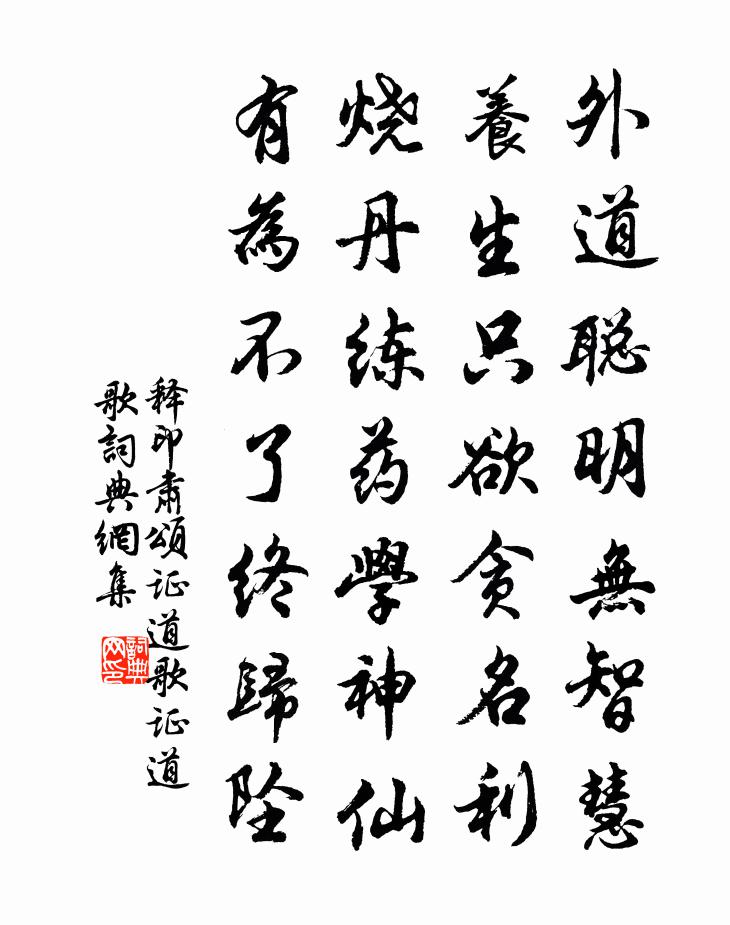 外道聪明無智慧
養生只欲贪名利
烧丹练药學神仙
有為不了终歸坠
释印肃頌证道歌证道
歌詞典網集
詞典
网印